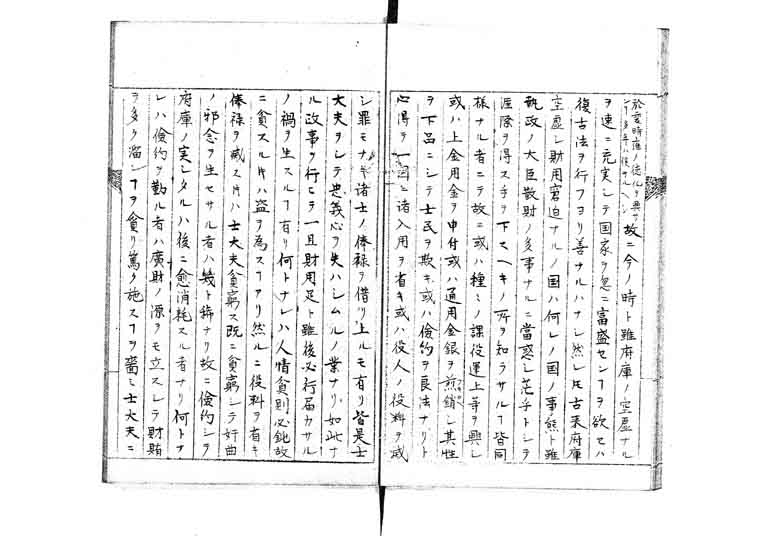 於堯時雍ノ徳化ヲ興サ
故ニ今ノ時ト雖府庫ノ空虚ナル
ヲ速ニ充実シテ国家ヲ忽ニ富盛セントヲ欲セハ
復古法ヲ行フヨリ善ナルハナシ然レ𪜈古来府庫
空虚シ財用窘迫ナルノ国ハ何レノ国ノ事態ト雖
執政ノ大臣散財ノ多事ナルニ當惑シ茫乎トシテ
涯際ヲ得ス手ヲ下スヘキノ所ヲ知ラサルヿ皆同
様ナル者ニテ故ニ或ハ種々ノ課役運上等ヲ興シ
或ハ上金用金ヲ申付或ハ通用金銀ヲ煎銷シ其性
ヲ下品ニシテ士民ヲ欺キ或ハ倹約ヲ良法ナリト
心得テ一図ニ諸入用ヲ省キ或ハ役人ノ役料ヲ减
シ罪モナキ諸士ノ俸禄ヲ借リ上ルモ有リ皆是士
大夫ヲシテ忠義心ヲ失ハシムルノ業ナリ如此ナ
ル政事ヲ行ヒテ一旦財用足ト雖後必行届カサル
ノ禍ヲ生スルヿ有リ何トナレハ人情貧則必鈍故
ニ貧スル𪜈ハ盗ヲ為スヿアリ然ルニ役料ヲ省キ
俸禄ヲ减ス𪜈ハ士大夫貧窮ス既ニ貧窮シテ奸曲
ノ邪念ヲ生セサル者ハ幾ト稀ナリ故ニ倹約シテ
府庫ノ実シタルハ後ニ愈消耗スル者ナリ何トナ
レハ倹約ヲ勤ル者ハ廣財ノ源ヲモ立スシテ財賄
ヲ多ク溜ンヿヲ貪リ篤ク施スヿヲ嗇シ士大夫ニ